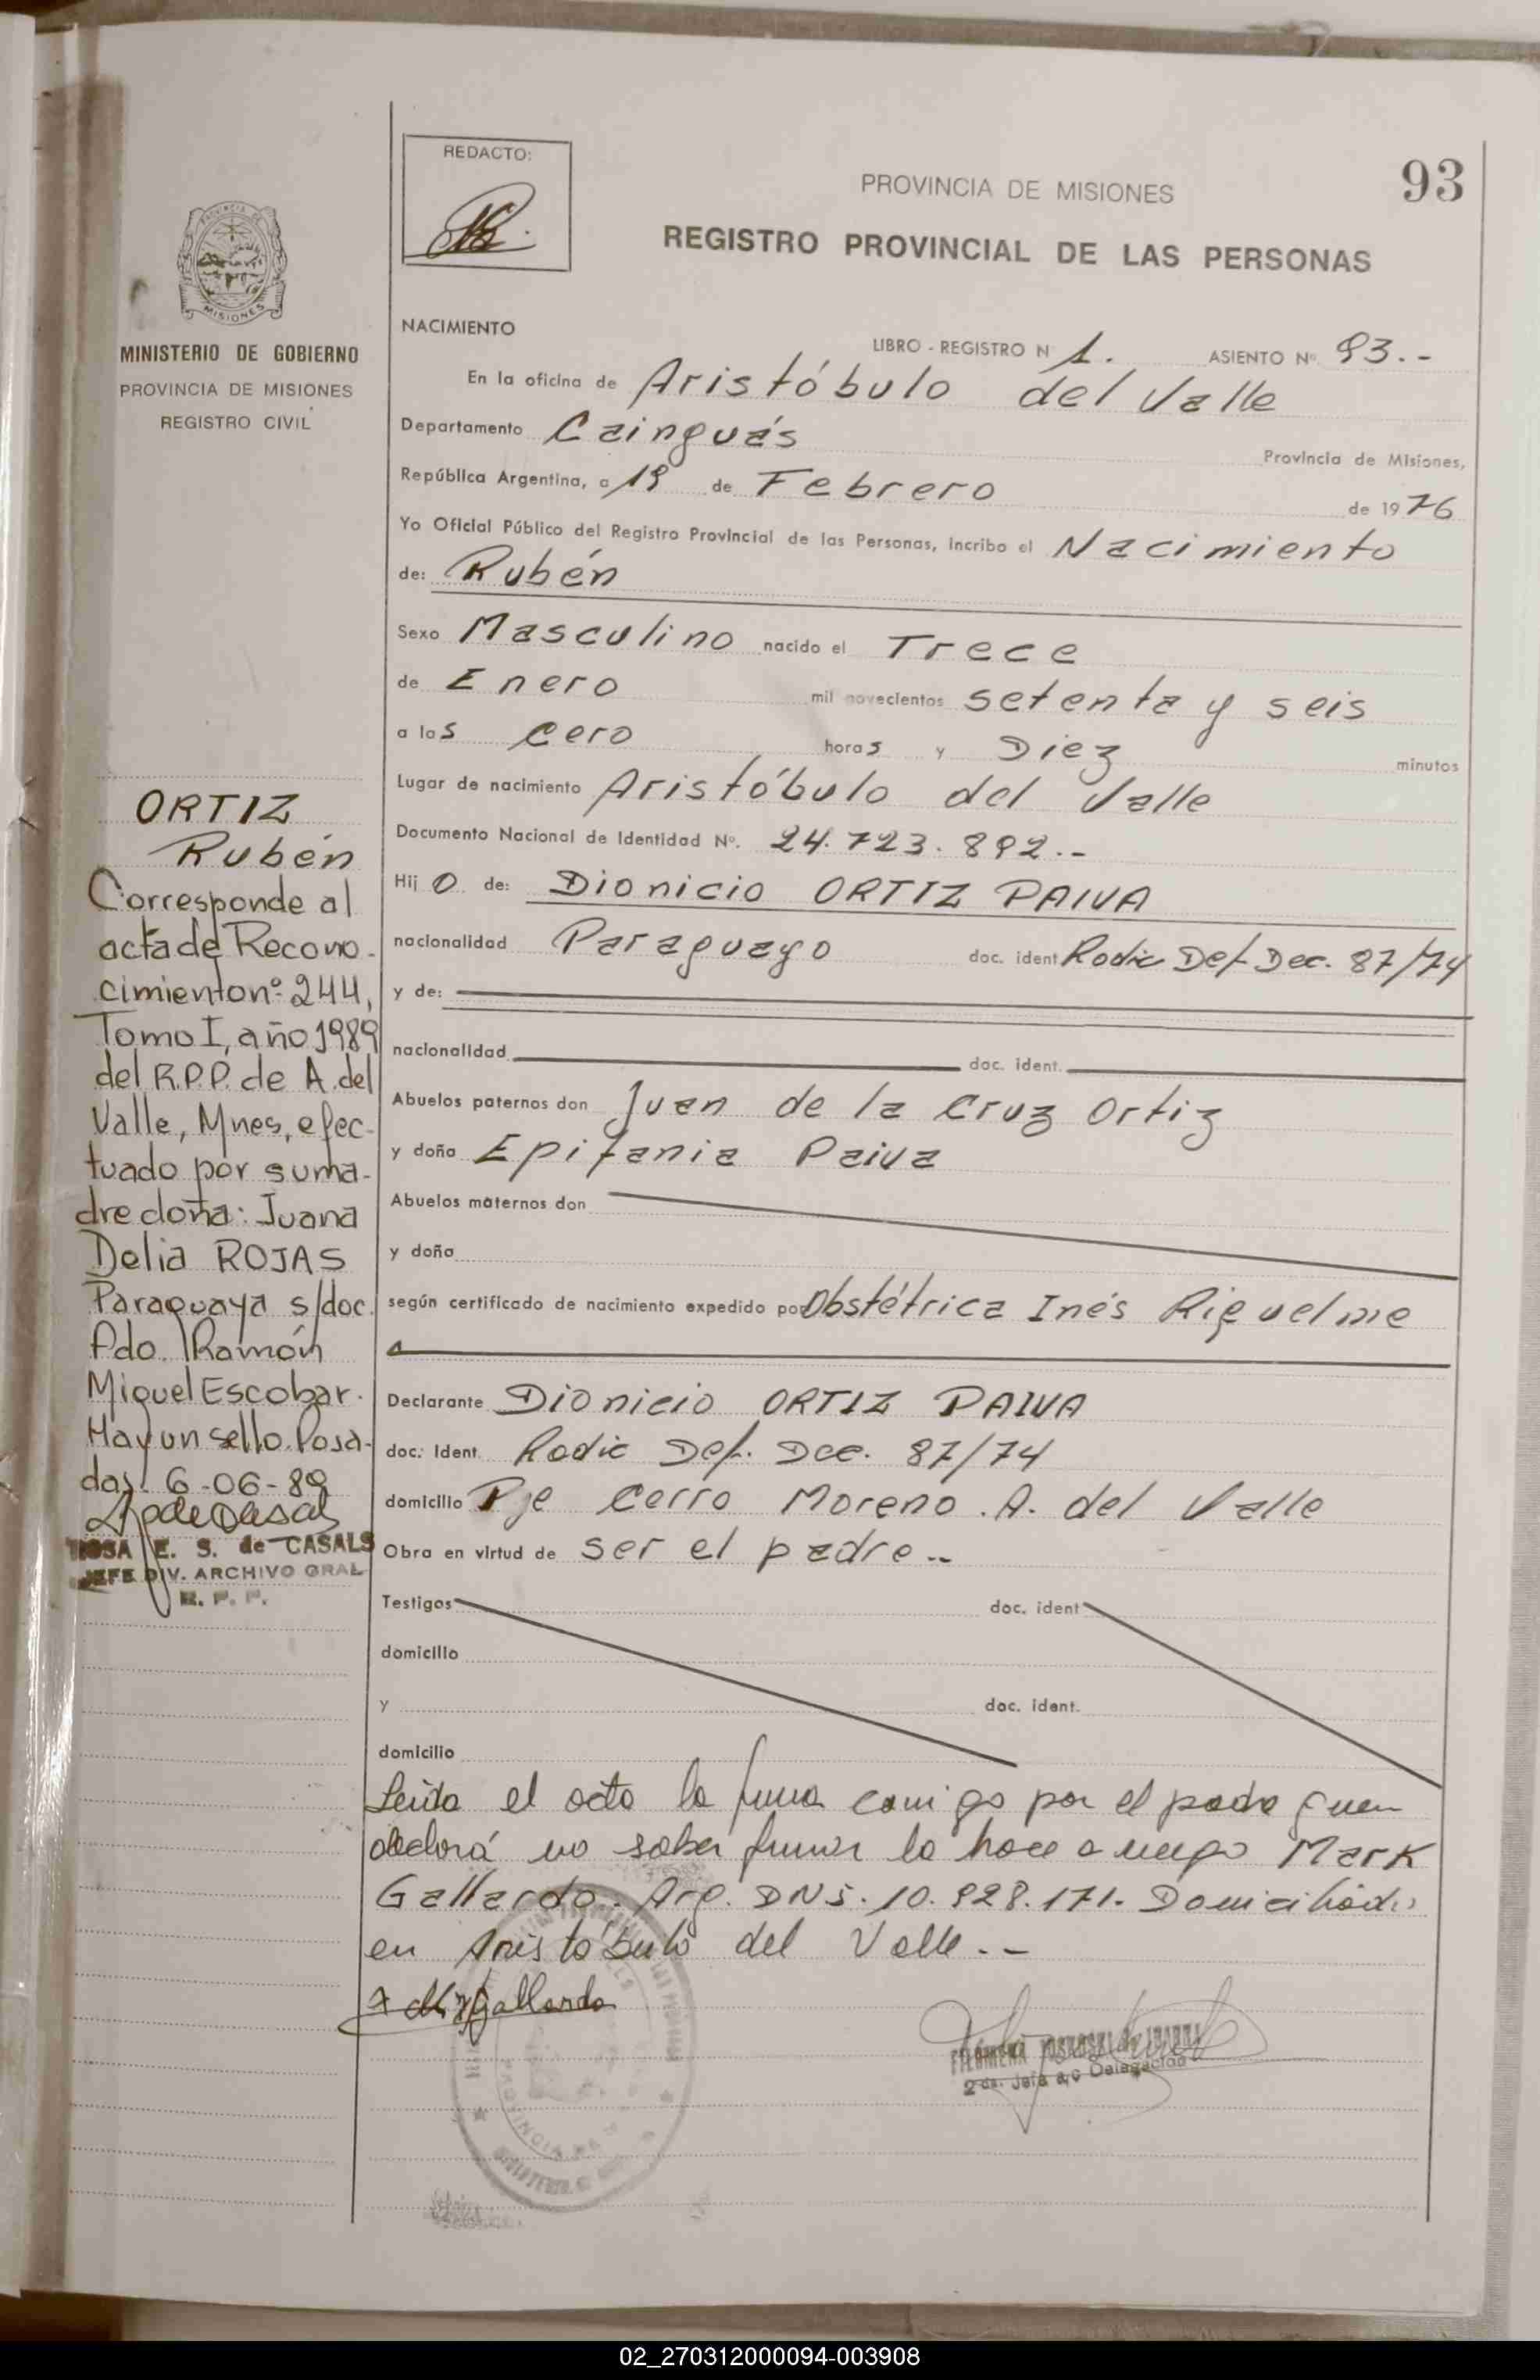 93
REDACTO:
PROVINCIA DE MISIONES
REGISTRO PROVINCIAL DE LAS PERSONAS
MISIONES
MINISTERIO DE GOBIERNO
PROVINCIA DE MISIONES
REGISTRO CIVIL
NACIMIENTO
LIBRO - REGISTRO N 1. ASIENTO Nº 93.-
En la oficina de Aristóbulo del Valle
Departamento Cainguás Provincia de Misiones,
República Argentina, a 19 de Febrero de 1976
Yo Oficial Público del Registro Provincial de las Personas, Incribo el Nacimiento
de: Rubén
Sexo Masculino nacido el Trece
de Enero mil novecientos setenta y seis
a las cero horas y Diez minutos
Lugar de nacimiento Aristóbulo del Valle
Documento Nacional de Identidad Nº. 24.723.892.-
Hijo de: Dionicio ORTIZ PAIVA
nacionalidad Paraguayo doc. ident Radic Def Dec. 87/74
y de:
nacionalidad doc. ident.
Abuelos paternos don Juan de la Cruz Ortiz
y doña Epifania Paiva
Abuelos maternos don
y doña
según certificado de nacimiento expedido por Obstétrica Inés Riquelme
Declarante Dionicio ORTIZ PAIVA
doc. Ident. Radic Def. Dec. 87/74
domicilio Pje Cerro Moreno. A. del Valle
Obra en virtud de ser el padre..
Testigos doc. ident
domicilio
y doc. ident.
domicilio
Leida el acta la firma conmigo por el padre quien
declará no saber firmar lo hace a ruego Mark
Gallardo. Arg. DNI. 10.928.171. Domiciliado
en Aristóbulo del Valle.--
Gallardo
2da. Jefa a/c Delegación
ORTIZ
Rubén
Corresponde al
acta de Recono-
cimiento nº 244,
Tomo I, año 1989
del R.P.P. de A. del
Valle, Mnes, efec-
tuado por su ma-
dre doña: Juana
Delia ROJAS
Paraguaya s/doc.
Fdo. Ramón
Miguel Escobar.
Hay un sello. Posa-
das 6-06-89
ROSA E. S. de CASALS
JEFE DIV. ARCHIVO GRAL
R. P. P.
02_270312000094-003908